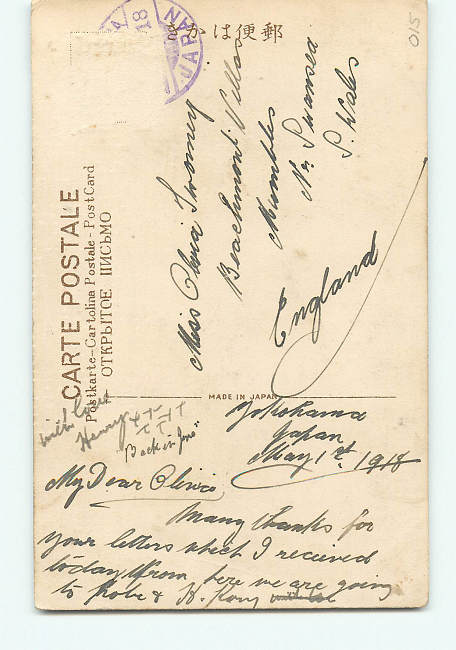 015
18
JAPAN
きかは便郵
CARTE POSTALE
Postkarte-Cartolina Postale-PostCard
ОТКРЫТОЕ ПИСЬМО
Miss Olivia Twomey
Beachmont Villas
Mumbles
Nr Swansea
S. Wales
England
MADE IN JAPAN
Yokohama
Japan
May 1st, 1918
with love
Henry
"Back in Jno"
My Dear Olivia
Many thanks for
your letters which I received
today From here we are going
to Kobe & H. Kong